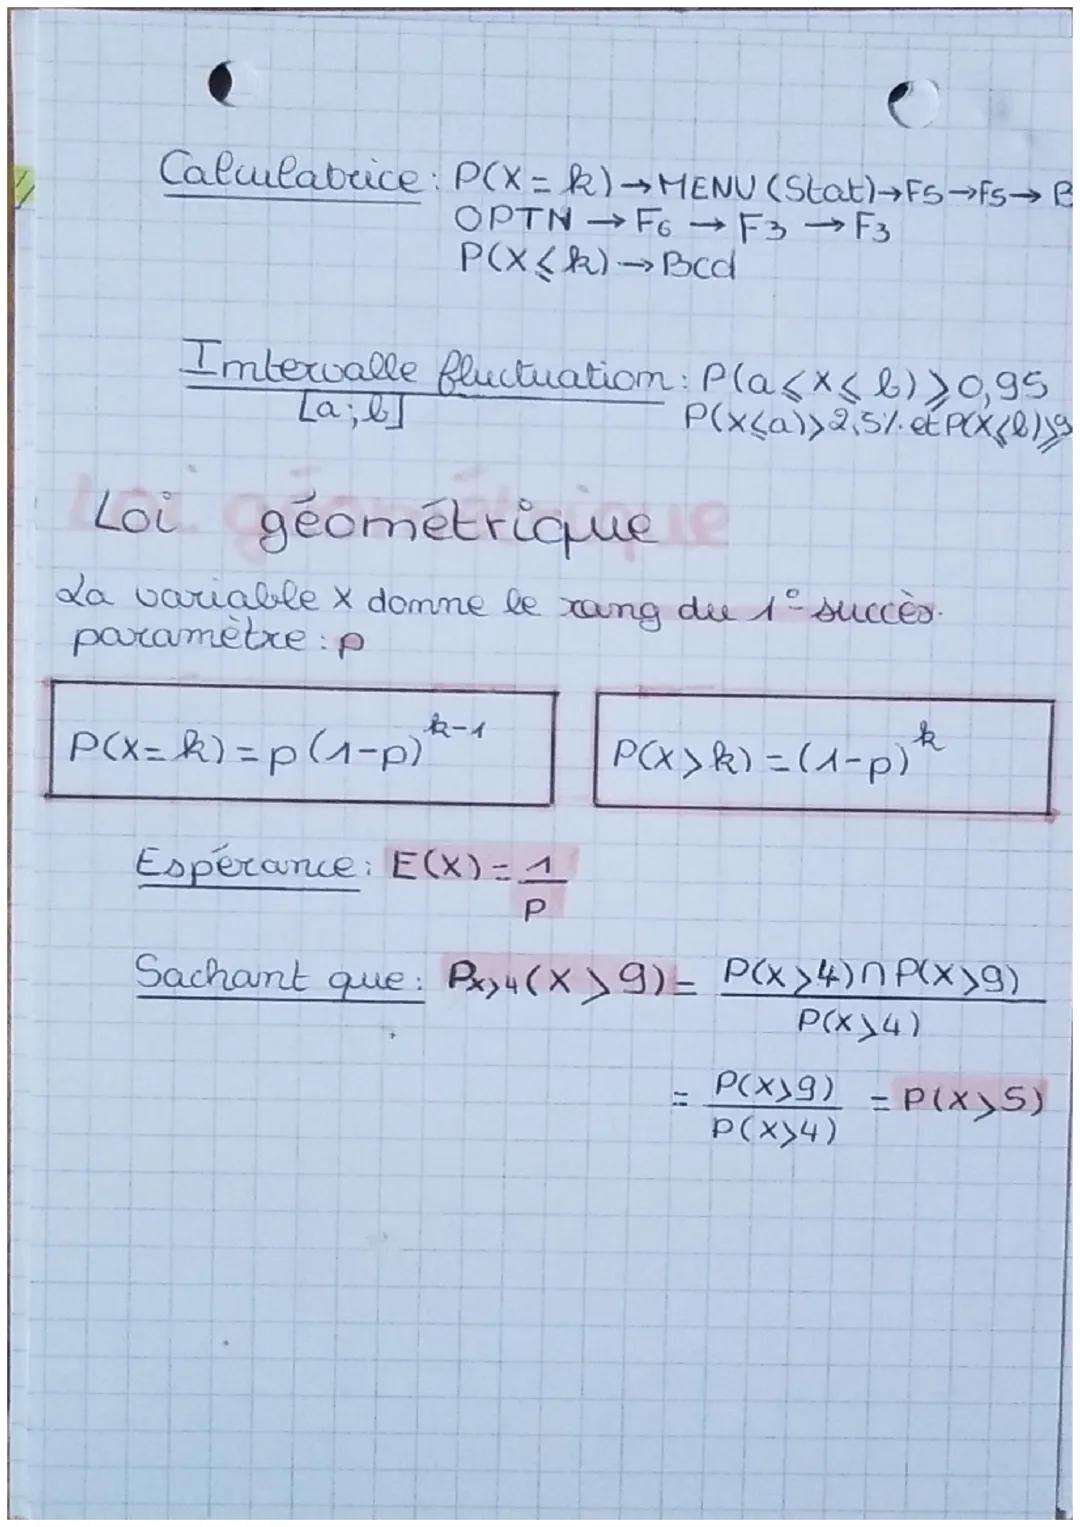 Calculatrice : P(X = k) → MENU (Stat) → F5 → F5 → B
OPTN → F6 → F3 → F3
P(X ⩽ k) → Bcd
Intervalle fluctuation : P(a ⩽ X ⩽ b) ⩾ 0,95
[a ; b]
P(X ⩽ a) > 2,5% et P(X ⩽ b) ⩾ 9
Loi géométrique
La variable X donne le rang du 1° succès.
paramètre : p
P(X = k) = p (1-p)^{k-1}
P(X > k) = (1-p)^{k}
Espérance : E(X) = \frac{1}{p}
Sachant que : P_{X>4}(X > 9) = \frac{P(X>4) ∩ P(X>9)}{P(X>4)}
= \frac{P(X>9)}{P(X>4)} = P(X > 5)